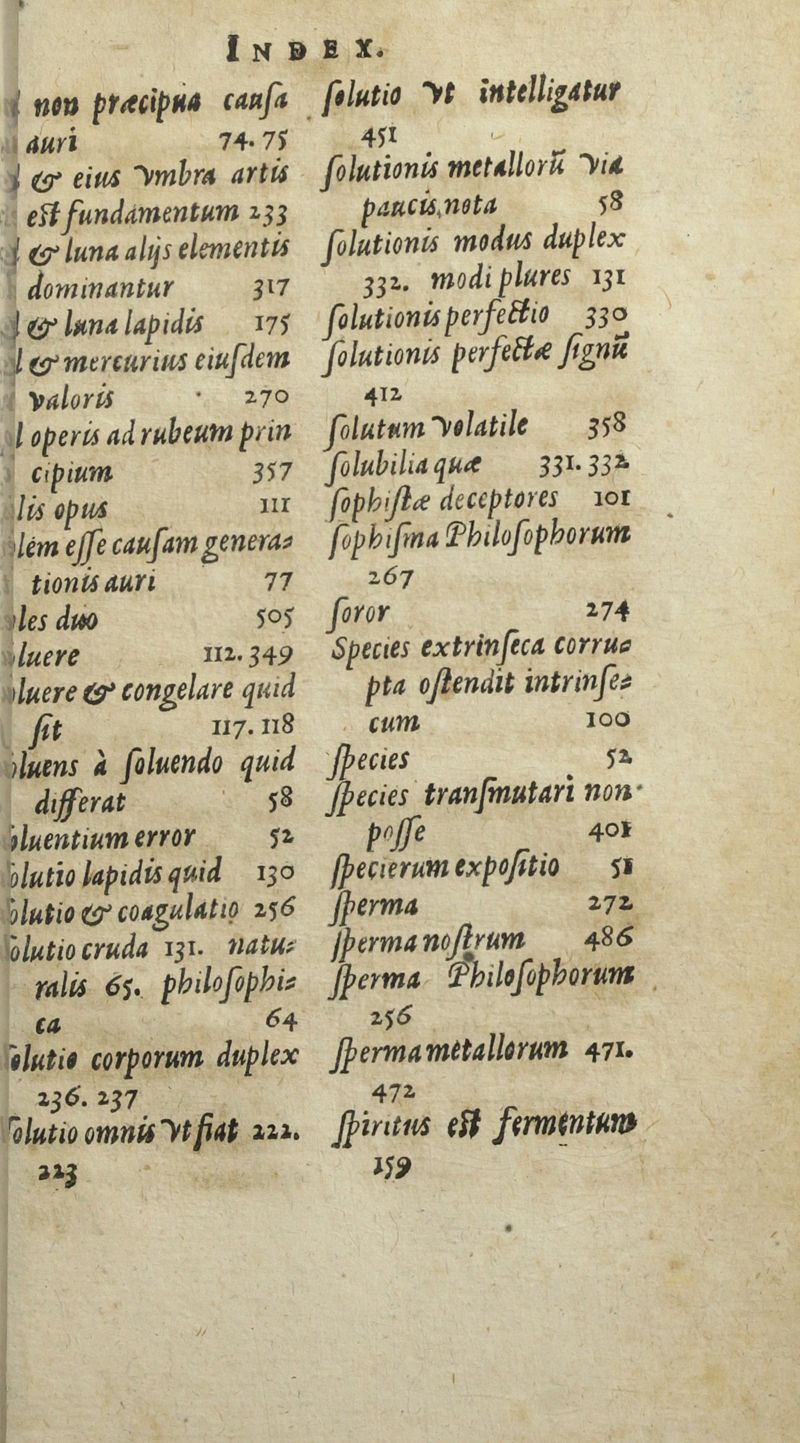 INDEX.
l non præcipua causa
auri 74. 75
l & eius vmbra artis
est fundamentum 233
l & luna alijs elementis
dominantur 317
l & luna lapidis 175
l & mercurius eiusdem
valoris 270
l operis ad rubeum prin
cipium 357
lis opus 111
lem esse causam genera=
tionis auri 77
les duo 505
luere 112. 349
luere & congelare quid
sit 117. 118
luens à soluendo quid
differat 58
luentium error 52
olutio lapidis quid 130
olutio & coagulatio 256
olutio cruda 131. natu=
ralis 65. philosophi=
ca 64
olutio corporum duplex
236. 237
olutio omnis vt fiat 222.
223
solutio vt intelligatur
451
solutionis metallorū via
paucis nota 58
solutionis modus duplex
332. modi plures 131
solutionis perfectio 330
solutionis perfectæ signū
412
solutum volatile 358
solubilia quæ 331. 332
sophistæ deceptores 101
sophisma Philosophorum
267
soror 274
Species extrinseca corru=
pta ostendit intrinse=
cum 100
species 52
species transmutari non
posse 401
specierum expositio 51
sperma 272
sperma nostrum 486
sperma Philosophorum
256
sperma metallorum 471.
472
spiritus est fermentum
159